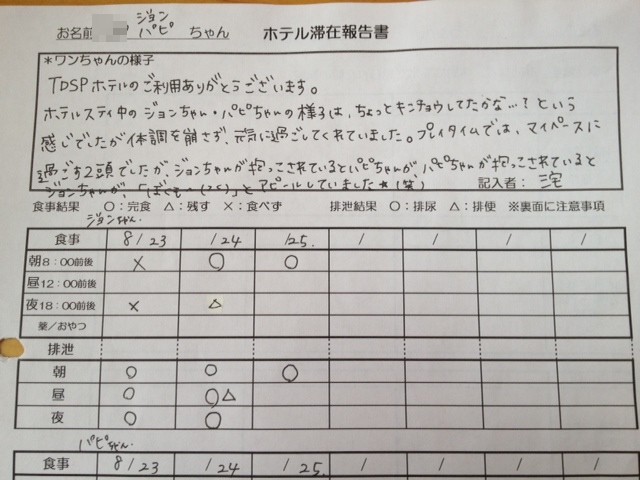 ジョン
お名前 パピ ちゃん ホテル滞在報告書
*ワンちゃんの様子
TDSPホテルのご利用ありがとうございます。
ホテルスティ中のジョンちゃん・パピちゃんの様子は、ちょっとキンチョウしてたかな…？という
感じでしたが体調を崩さず、元気に過ごしてくれていました。プレイタイムでは、マイペースに
過ごす2頭でしたが、ジョンちゃんが抱っこされているとパピちゃんが、パピちゃんが抱っこされていると
ジョンちゃんが、「ぼくも…」とアピールしていました*(笑)
記入者：三宅
食事結果 ○：完食 △：残す ×：食べず 排泄結果 ○：排尿 △：排便 ※裏面に注意事項
ジョンちゃん
食事 8/23 /24 /25. / / / /
朝8：00前後 × ○ ○
昼12：00前後
夜18：00前後 × △
薬/おやつ
排泄
朝 ○ ○ ○
昼 ○ ○△
夜 ○ ○
パピちゃん
食事 8/23 /24 /25. / / / /